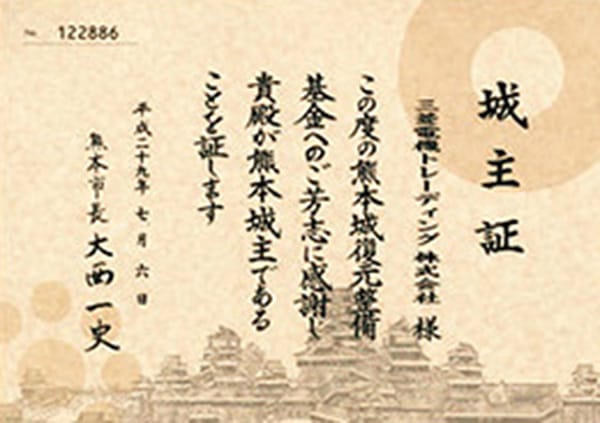 No. 122886
城主証
三菱電機トレーディング株式会社 様
この度の熊本城復元整備
基金へのご芳志に感謝し
貴殿が熊本城主である
ことを証します
平成二十九年 七月 六日
熊本市長 大西一史